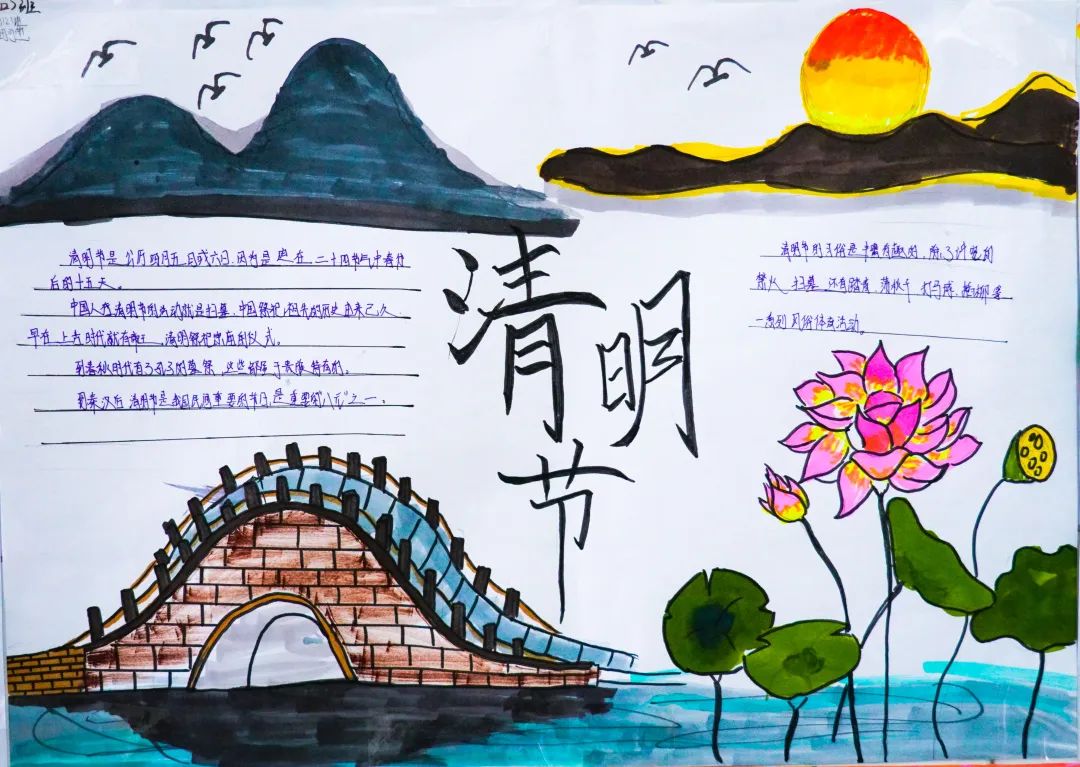 清明节是公历四月五日或六日,因为是在,二十四节气中春分
后的十五天。
中国人为清明节的活动就是扫墓,中国祭祀祖先的历史由来已久
早在上古时代就有,清明祭祀仪式。
到春秋时代有了孔子的墓祭,这些都属于贵族特有的。
到秦汉后清明节是我国民间重要的节日,是重要的"八节"之一。
清明
节
清明节的习俗是丰富有趣的,除了讲究的
禁火、扫墓,还有踏青、荡秋千、打马球、插柳等
一系列风俗体育活动。